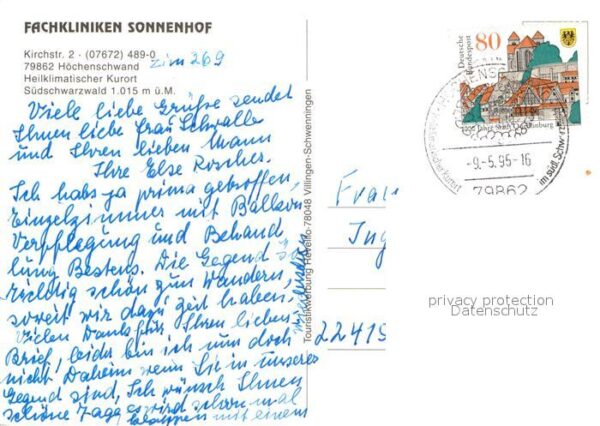 FACHKLINIKEN SONNENHOF
Kirchstr. 2 - (07672) 489-0
79862 Höchenschwand
Heilklimatischer Kurort
Südschwarzwald 1.015 m ü.M.
Zim 269
Viele liebe Grüße sendet
Ihnen liebe Frau Schwalle
und Ihren lieben Mann
Ihre Else Roscher.
Ich habs ja prima getroffen,
Einzelzimmer mit Balkon
Verpflegung und Behand
lung Bestens. Die Gegend
richtig schön zum Wandern,
soweit wir dazu Zeit haben.
Vielen Dank für Ihren lieben
Brief, leider bin ich nun doch
nicht Daheim wenn Sie in unserer
Gegend sind, Ich wünsch Ihnen
schöne Tage es wird schon mal
klappen mit einem
Touristikwerbung 78048 Villingen-Schwenningen
Frau
Ing
22419
Deutsche
Bundespost
80
1000 Jahre Stadt
-9.-5.95-16
79862
im südl. Schwarz
privacy protection
Datenschutz